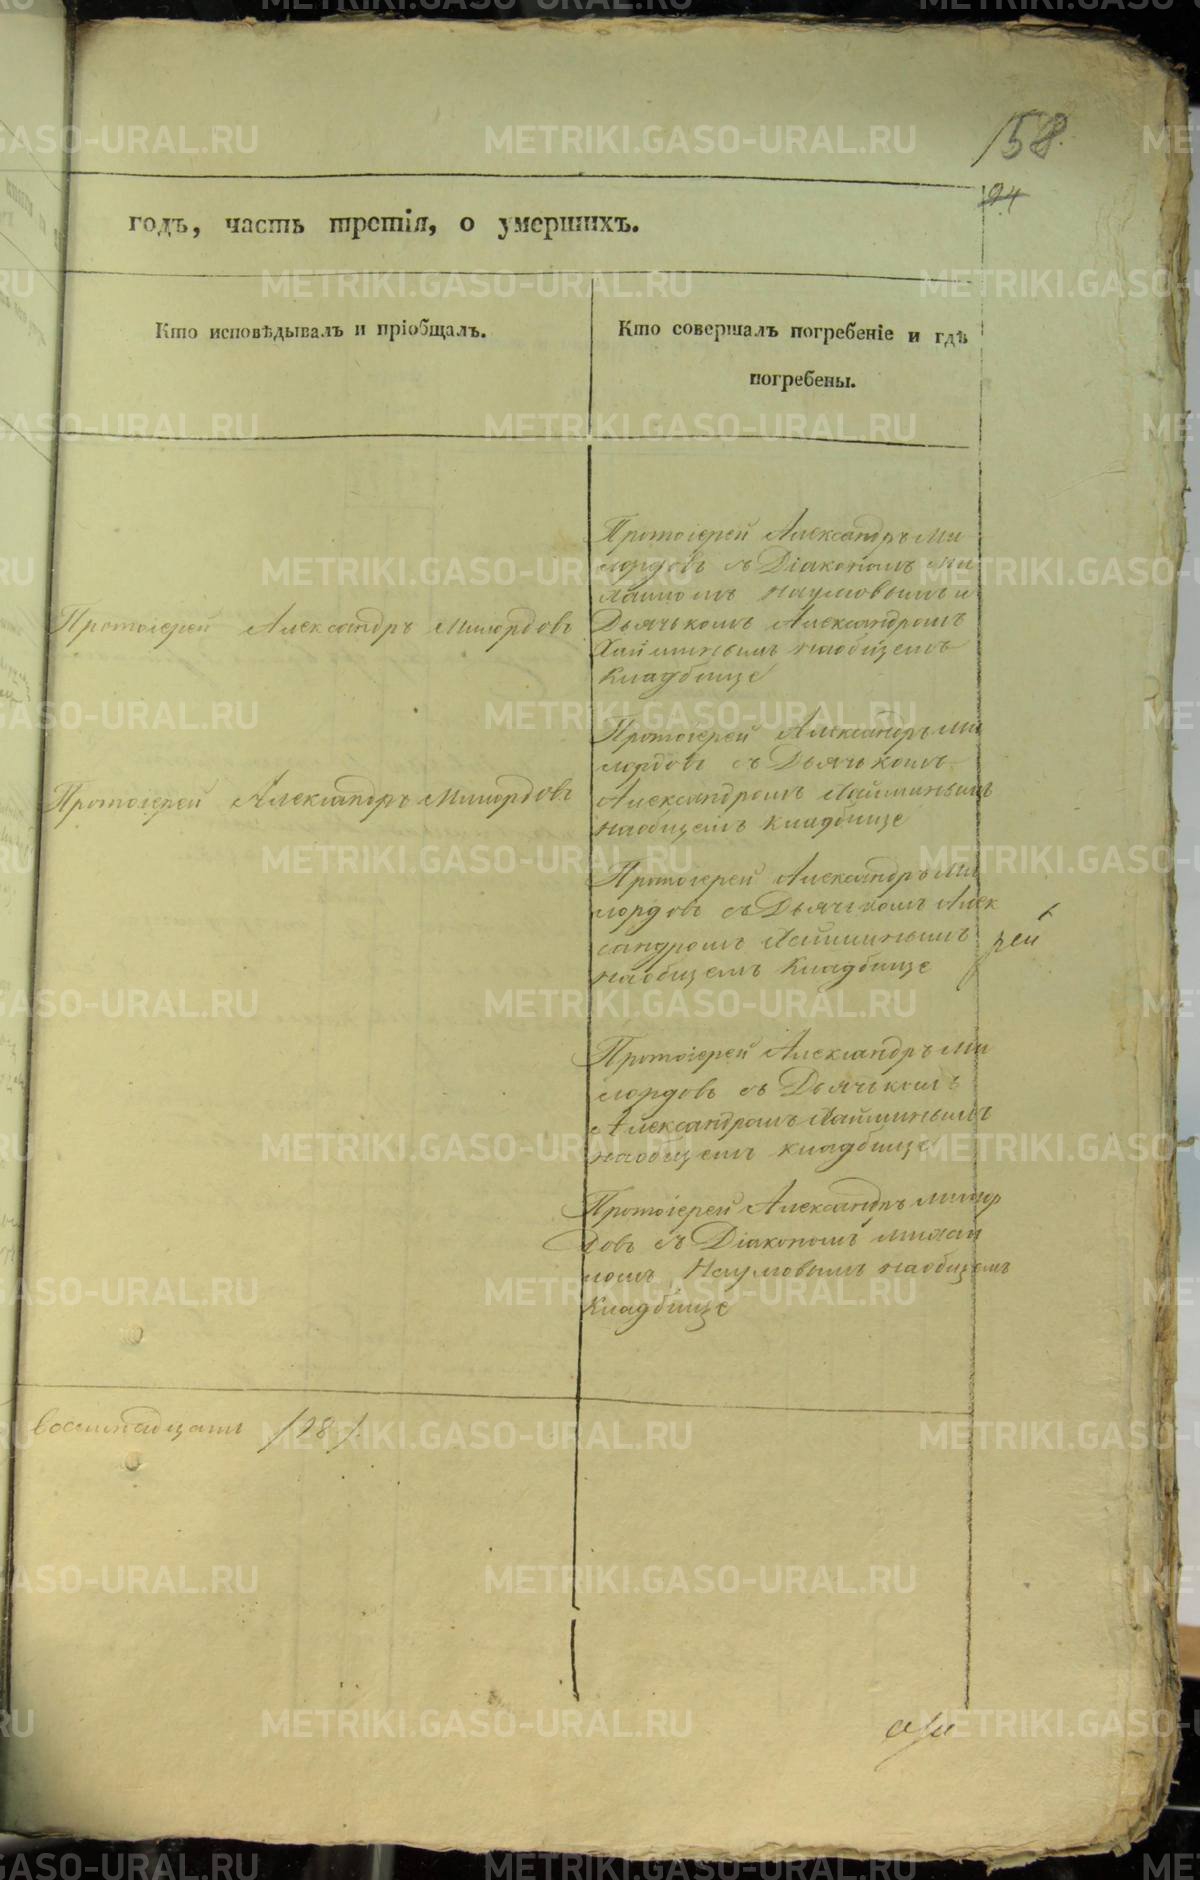 158.
24
годъ, часть третія, о умершихъ.
Кто исповѣдывалъ и пріобщалъ.
Кто совершалъ погребеніе и гдѣ
погребены.
Протоіерей Александръ Милордовъ
Протоіерей Александръ Ми
лордовъ съ Діакономъ Ми
хаиломъ Наумовымъ и
Дьячькомъ Александромъ
наобщемъ
Кладбище
Протоіерей Александръ Милордовъ
Протоіерей Александръ Ми
лордовъ съ Дьячькомъ
Александромъ
наобщемъ кладбище
Протоіерей Александръ Ми
лордовъ съ Дьячькомъ Алек
сандромъ
наобщемъ Кладбище
рей
Протоіерей Александръ Ми
лордовъ съ Дьячькомъ
Александромъ
наобщемъ кладбище
Протоіерей Александръ Милор
довъ съ Діакономъ Михаи
ломъ Наумовымъ наобщемъ
Кладбище
восемнадцать /18/.
METRIKI.GASO-URAL.RU